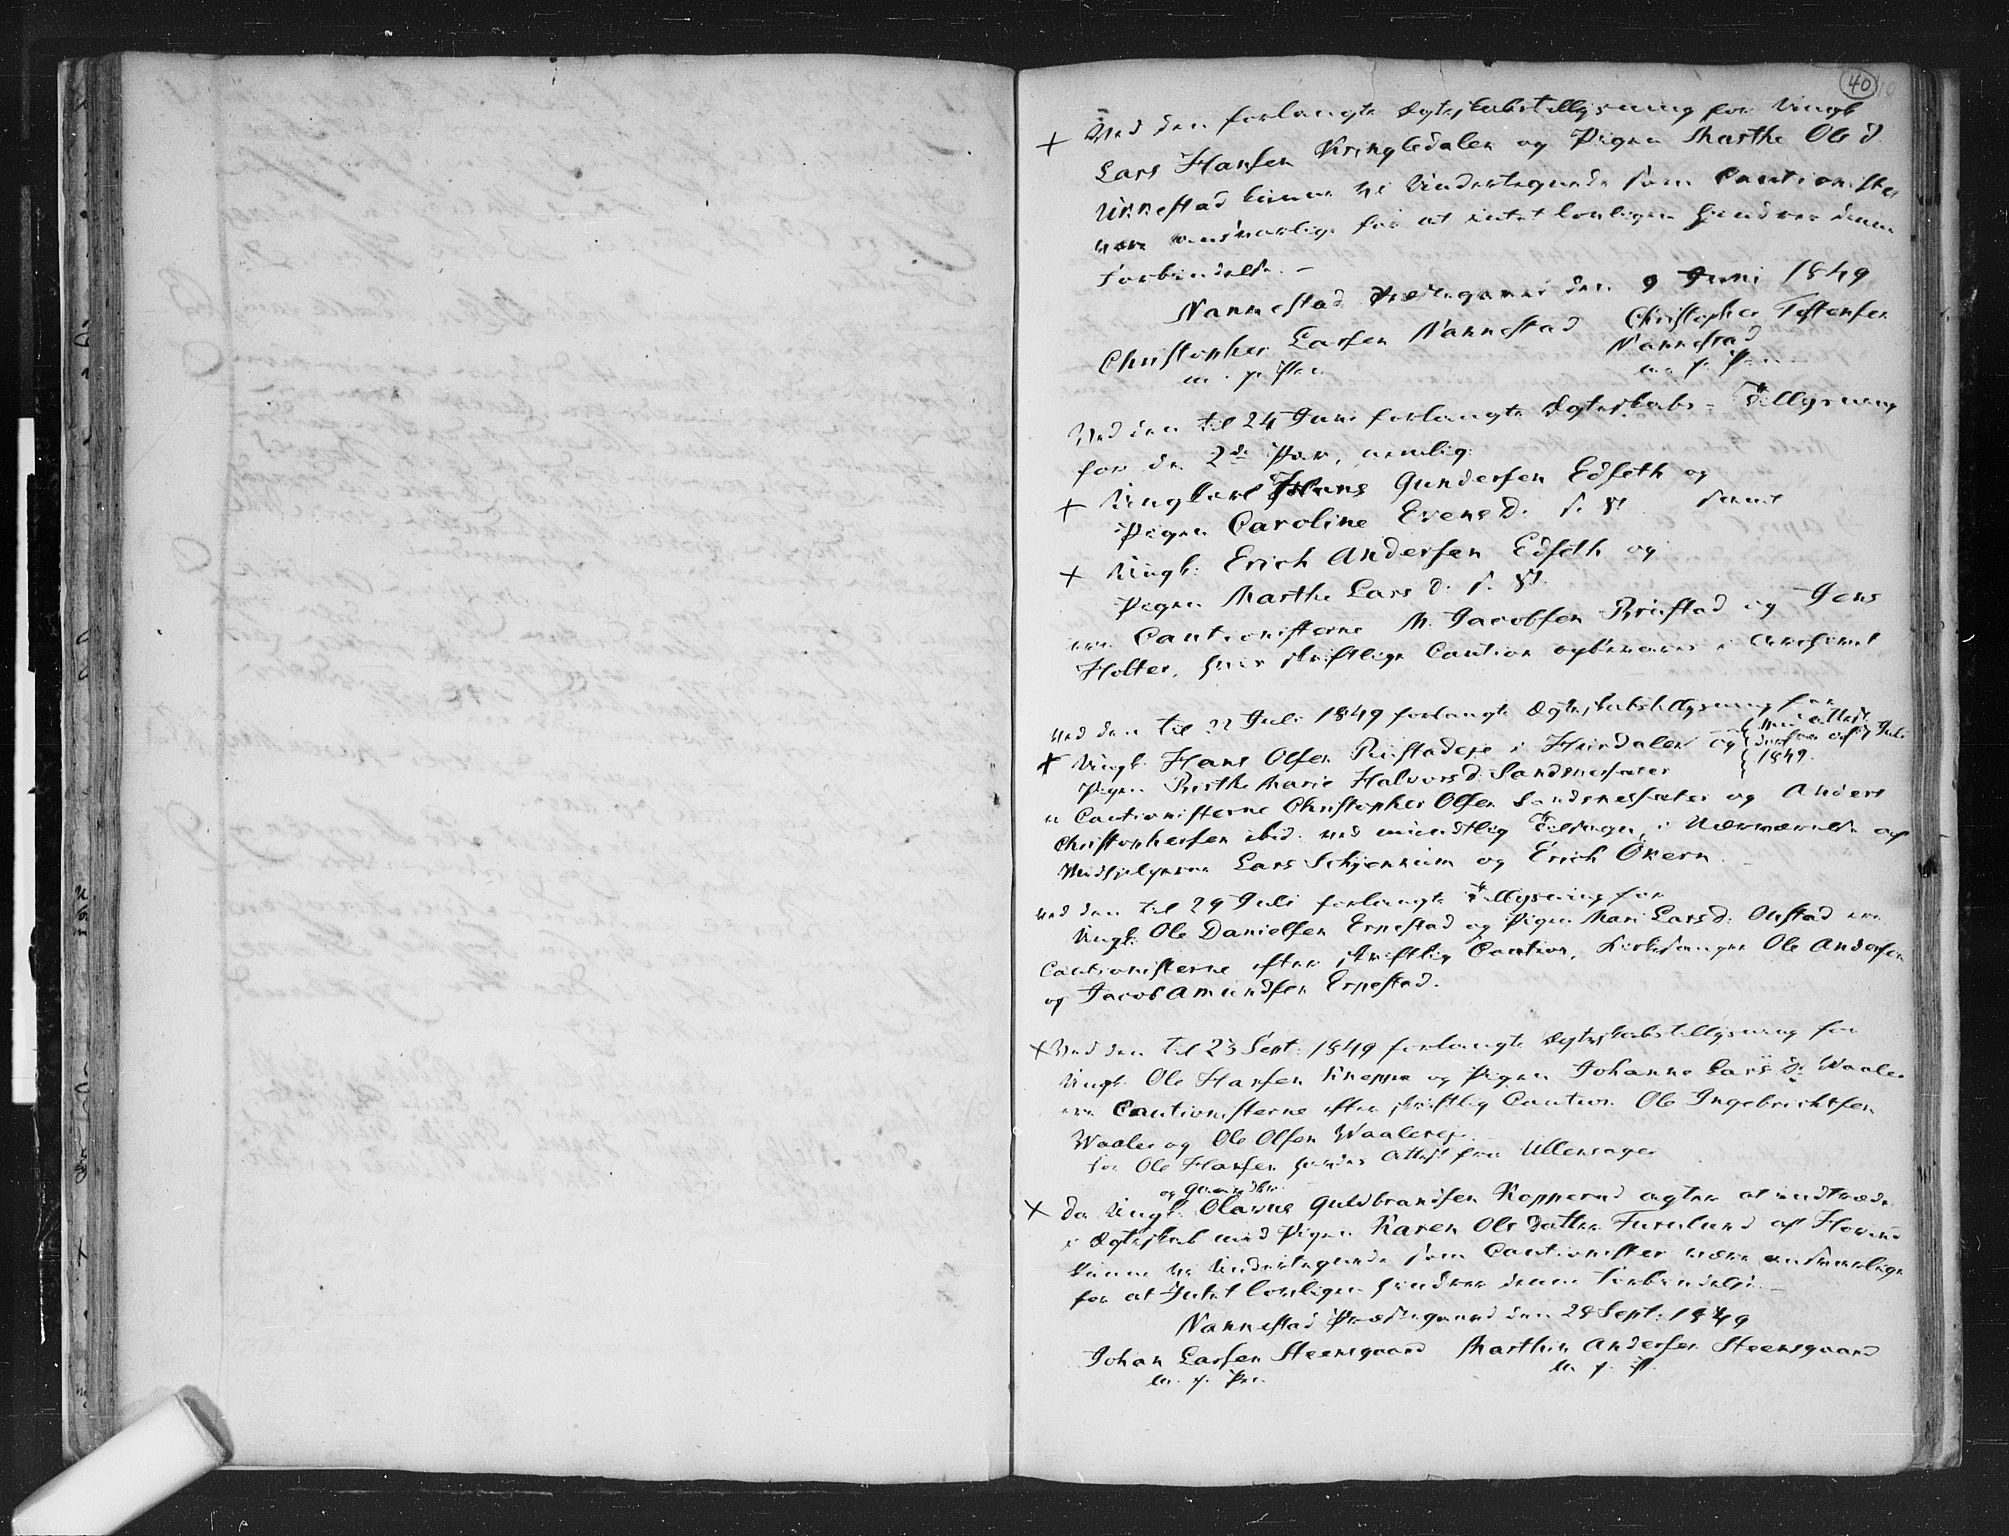 40
+ Ved den forlangte Ægteskabstillysning for Ungk
Lars Hansen Kringledalen og Pigen Marthe Ols d.
kunne vi Undertegnede som Cautionister
være ansvarlige for at intet lovligen hindrer denne
Forbindelse. –
Nannestad Præstegaard den 9 Juni 1849
Christopher Larsen Nannestad Christopher
Nannestad
m. p. Pen
Ved den til 24 Juni forlangte Ægteskabs-Tillysning
for de 2de Par, nemlig:
+ Ungkarl Hans Gundersen Edseth og
Pigen Caroline Evensd. s. St. samt
+ Ungk: Erich Andersen Edseth og
Pigen Marthe Lars d. s. St.
ere Cautionisterne M. Jacobsen Bristad og Jens
Holter, hvis skriftlige Caution opbevares i Archivet
Ved den til 22 Juli 1849 forlangte Ægteskabstillysning for
+ Ungk. Hans Olsen i Heirdalen og { med Attest
Pigen Birthe Marie Halvorsd. Sandsnesseter { 1849.
er Cautionisterne Christopher Olsen Sandsnesseter og Anders
Christophersen ibid. ved mundtlig Tilsagn i Nærværelse af
Medhjelperne Lars Schjenneim og Erich Økern.
Ved den til 29 Juli forlangte Tillysning for
Ungk: Ole Danielsen Erpestad og Pigen Mari Larsd. Onstad ere
Cautionisterne efter skriftlig Caution, Kirkesanger Ole Andersen
og Jacob Amundsen Erpestad.
+ Ved den til 23 Sept: 1849 forlangte Ægteskabstillysning for
Ungk. Ole Hansen Kneppe og Pigen Johanne Lars D. Waaler
ere Cautionisterne efter skriftlig Caution Ole Ingebrichtsen
Waaler og Ole Olsen Waalereje.
For Ole Hansen havdes Attest fra Ullensager
og Gaardbr.
+ Da Ungk. Olaves Guldbrandsen Kopperud agter at indtræde
i Ægteskab med Pigen Karen Ols Datter Furulund af Hovind
kunne vi Undertegnede som Cautionister være ansvarlige
for at Intet lovligen hindrer denne Forbindelse. –
Nannestad Præstegaard den 28 Sept: 1849
Johan Larsen Steensgaard Marthin Andersen Steensgaard
m. p. Pen. m. p. P.